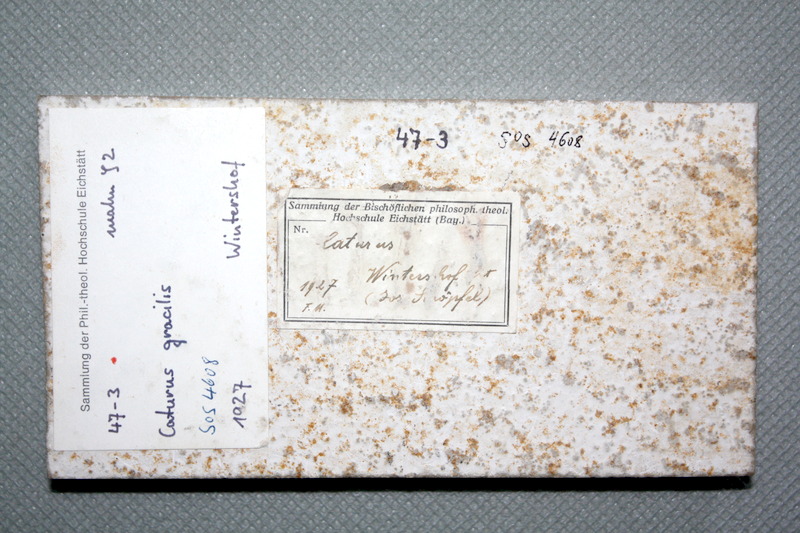 47-3 SOS 4608
Sammlung der Bischöflichen philosoph.-theol.
Hochschule Eichstätt (Bay.)
Nr.
Caturus
Wintershof
1927
F. M.
Sammlung der Phil.-theol. Hochschule Eichstätt
47-3 malm ζ2
Caturus gracilis
SOS 4608
1927 Wintershof